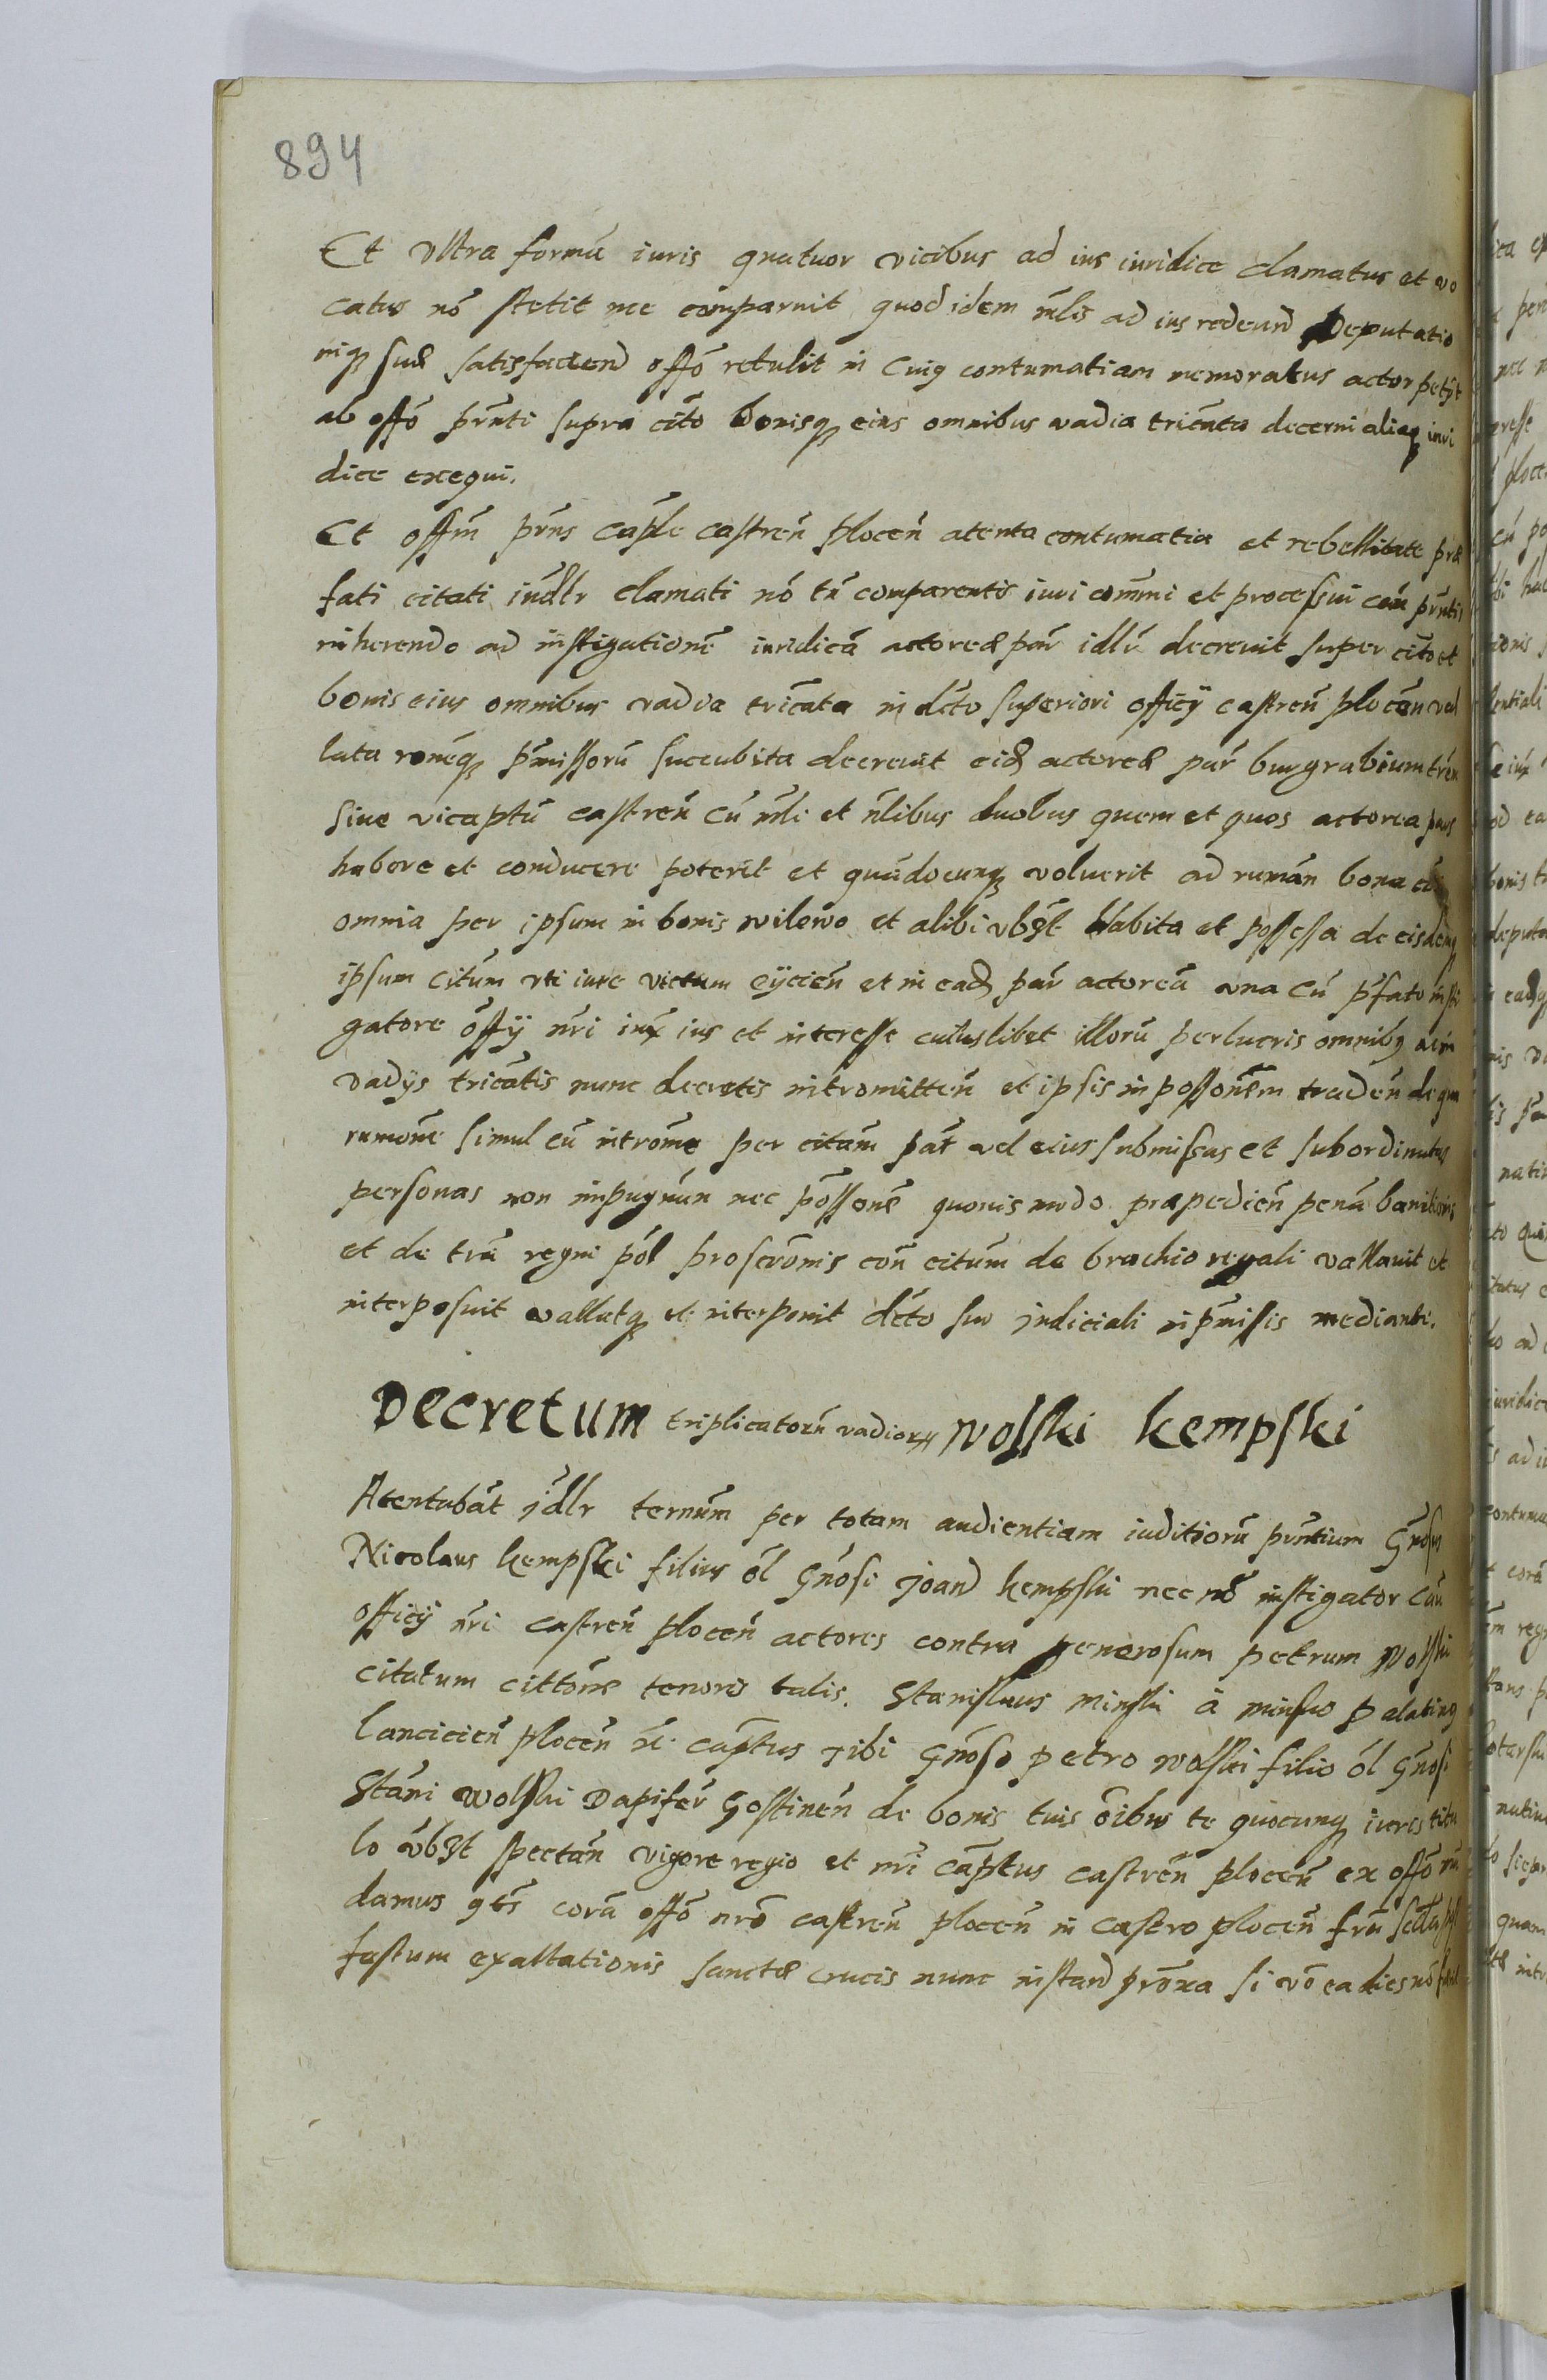 894
Et ultra formã iuris quatuor vicibus ad ius iuridice clamatus et vo
catus nõ stetit nec comparuit quod idem mlis ad ius redeund Deputatio
niq suæ satisfaciend offõ retulit in Cuiq contumatiam memoratus actor petÿt
ab offõ prnti supra cito bonisq eius omnibus vadia tricata decerni aliaq iuri
dice exequi.
Et offm prns Caple castren plocen atenta contumatia et rebellitate præ
fati citati iudlr clamati nõ tn comparentis iuri commi et processui cau prntis
inherendo ad instigationẽ iuridicã actoreæ par idlr decrevit super cito et
bonis eius omnibus vadia tricata in dcto superiori officÿ castren plocen val
lata ronéq pmissorũ succubita decrevit eid actoreæ par burgrabium trén
sive vicaptũ castren cũ mli et nlibus duobus quem et quos actorea pars
habere et conducere poterit et quãdocunq voluerit ad ruman bona
omnia per ipsum in bonis wilewo et alibi ubqt habita et possessa de eisdemq
ipsum citum uti iure victum eÿcien et in ead par actoreã una cũ pfato insti
gatore offÿ nri iux ius et interesse cuiuslibet illorũ per lucris omnibq ac in
vadÿs tricatis nunc decretis intromitten et ipsis in possonem traden de qua
rumone simul cũ introme per citam par vel eius submissas et subordinatas
personas non impugnan nec possone quovis modo præpedien penã banitionis
et de tra regni pol proscronis con citum de brachio regali vallavit et
interposuit vallatq et interponit dcto suo judiciali in pmissis mediante.
Decretum triplicatorũ vadior Wolski Kempski
Atentabat jdlr ternum per totam audientiam iuditiorũ prntium Gnosus
Nicolaus Kempski filius ol Gnosi Joand Kempski nec nõ instigator Cau
officÿ nri castren plocen actores contra generosum petrum Wolski
citatum cittone tenoris talis. Stanislaus minski à minsko palatinq
lancicien plocen etc captus Tibi Gnoso petro wolski filio ol Gnosi
Stani wolski Dapifer Gostinen de bonis tuis oibus te quocunq iuris titu
lo ubqt spectan vigore regio et nri captus castren plocen ex offõ mã
damus qts corã offõ nrõ castren plocen in castro plocen fria
fastum exaltationis sanctæ crucis nunc instand proxa si võ ea dies nõ